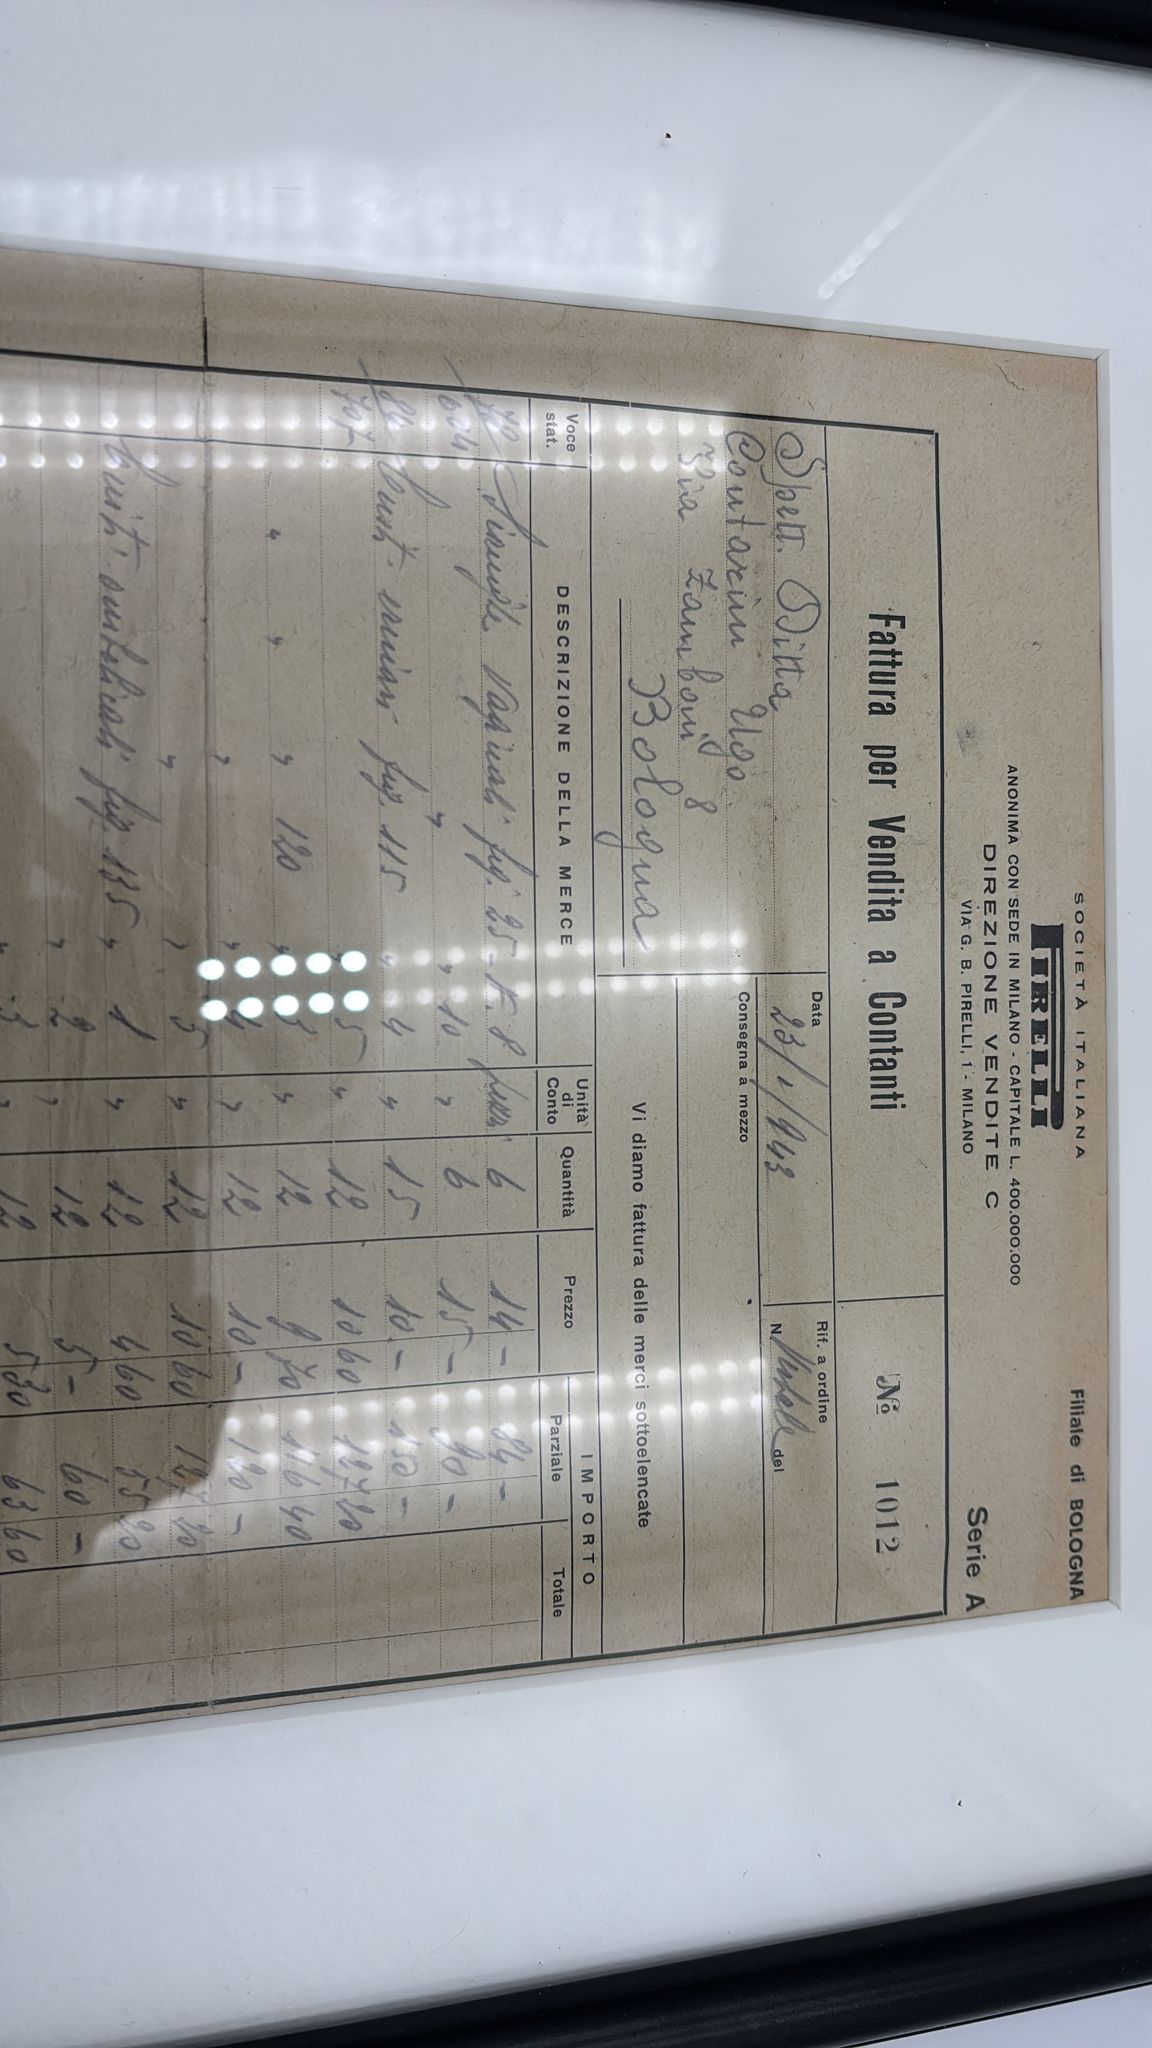 SOCIETÀ ITALIANA
PIRELLI
Filiale di BOLOGNA
ANONIMA CON SEDE IN MILANO - CAPITALE L. 400.000.000
DIREZIONE VENDITE C
VIA G. B. PIRELLI, 1 - MILANO
Serie A
Fattura per Vendita a Contanti
№ 1012
Spett. Ditta
Contarini Ugo
Via Zamboni 8
Bologna
Data
23/1/943
Rif. a ordine
N. del
Consegna a mezzo
Vi diamo fattura delle merci sottoelencate
Voce stat.
DESCRIZIONE DELLA MERCE
Unità di Conto
Quantità
Prezzo
IMPORTO
Parziale
Totale
vaginali fig. 25 - N. 8 6 14 - 84 -
" " 10 " 6 15 - 90 -
fig. 115 " 4 " 15 10 - 150 -
707 5 " 12 10 60 127 20
" " " 120 " 3 " 12 9 70 116 40
" " 4 " 12 10 - 120 -
" " 5 " 12 10 60 127 20
ombelicali fig. 135 " 1 " 12 4 60 55 20
" 2 " 12 5 - 60 -
" 3 " 12 5 30 63 60